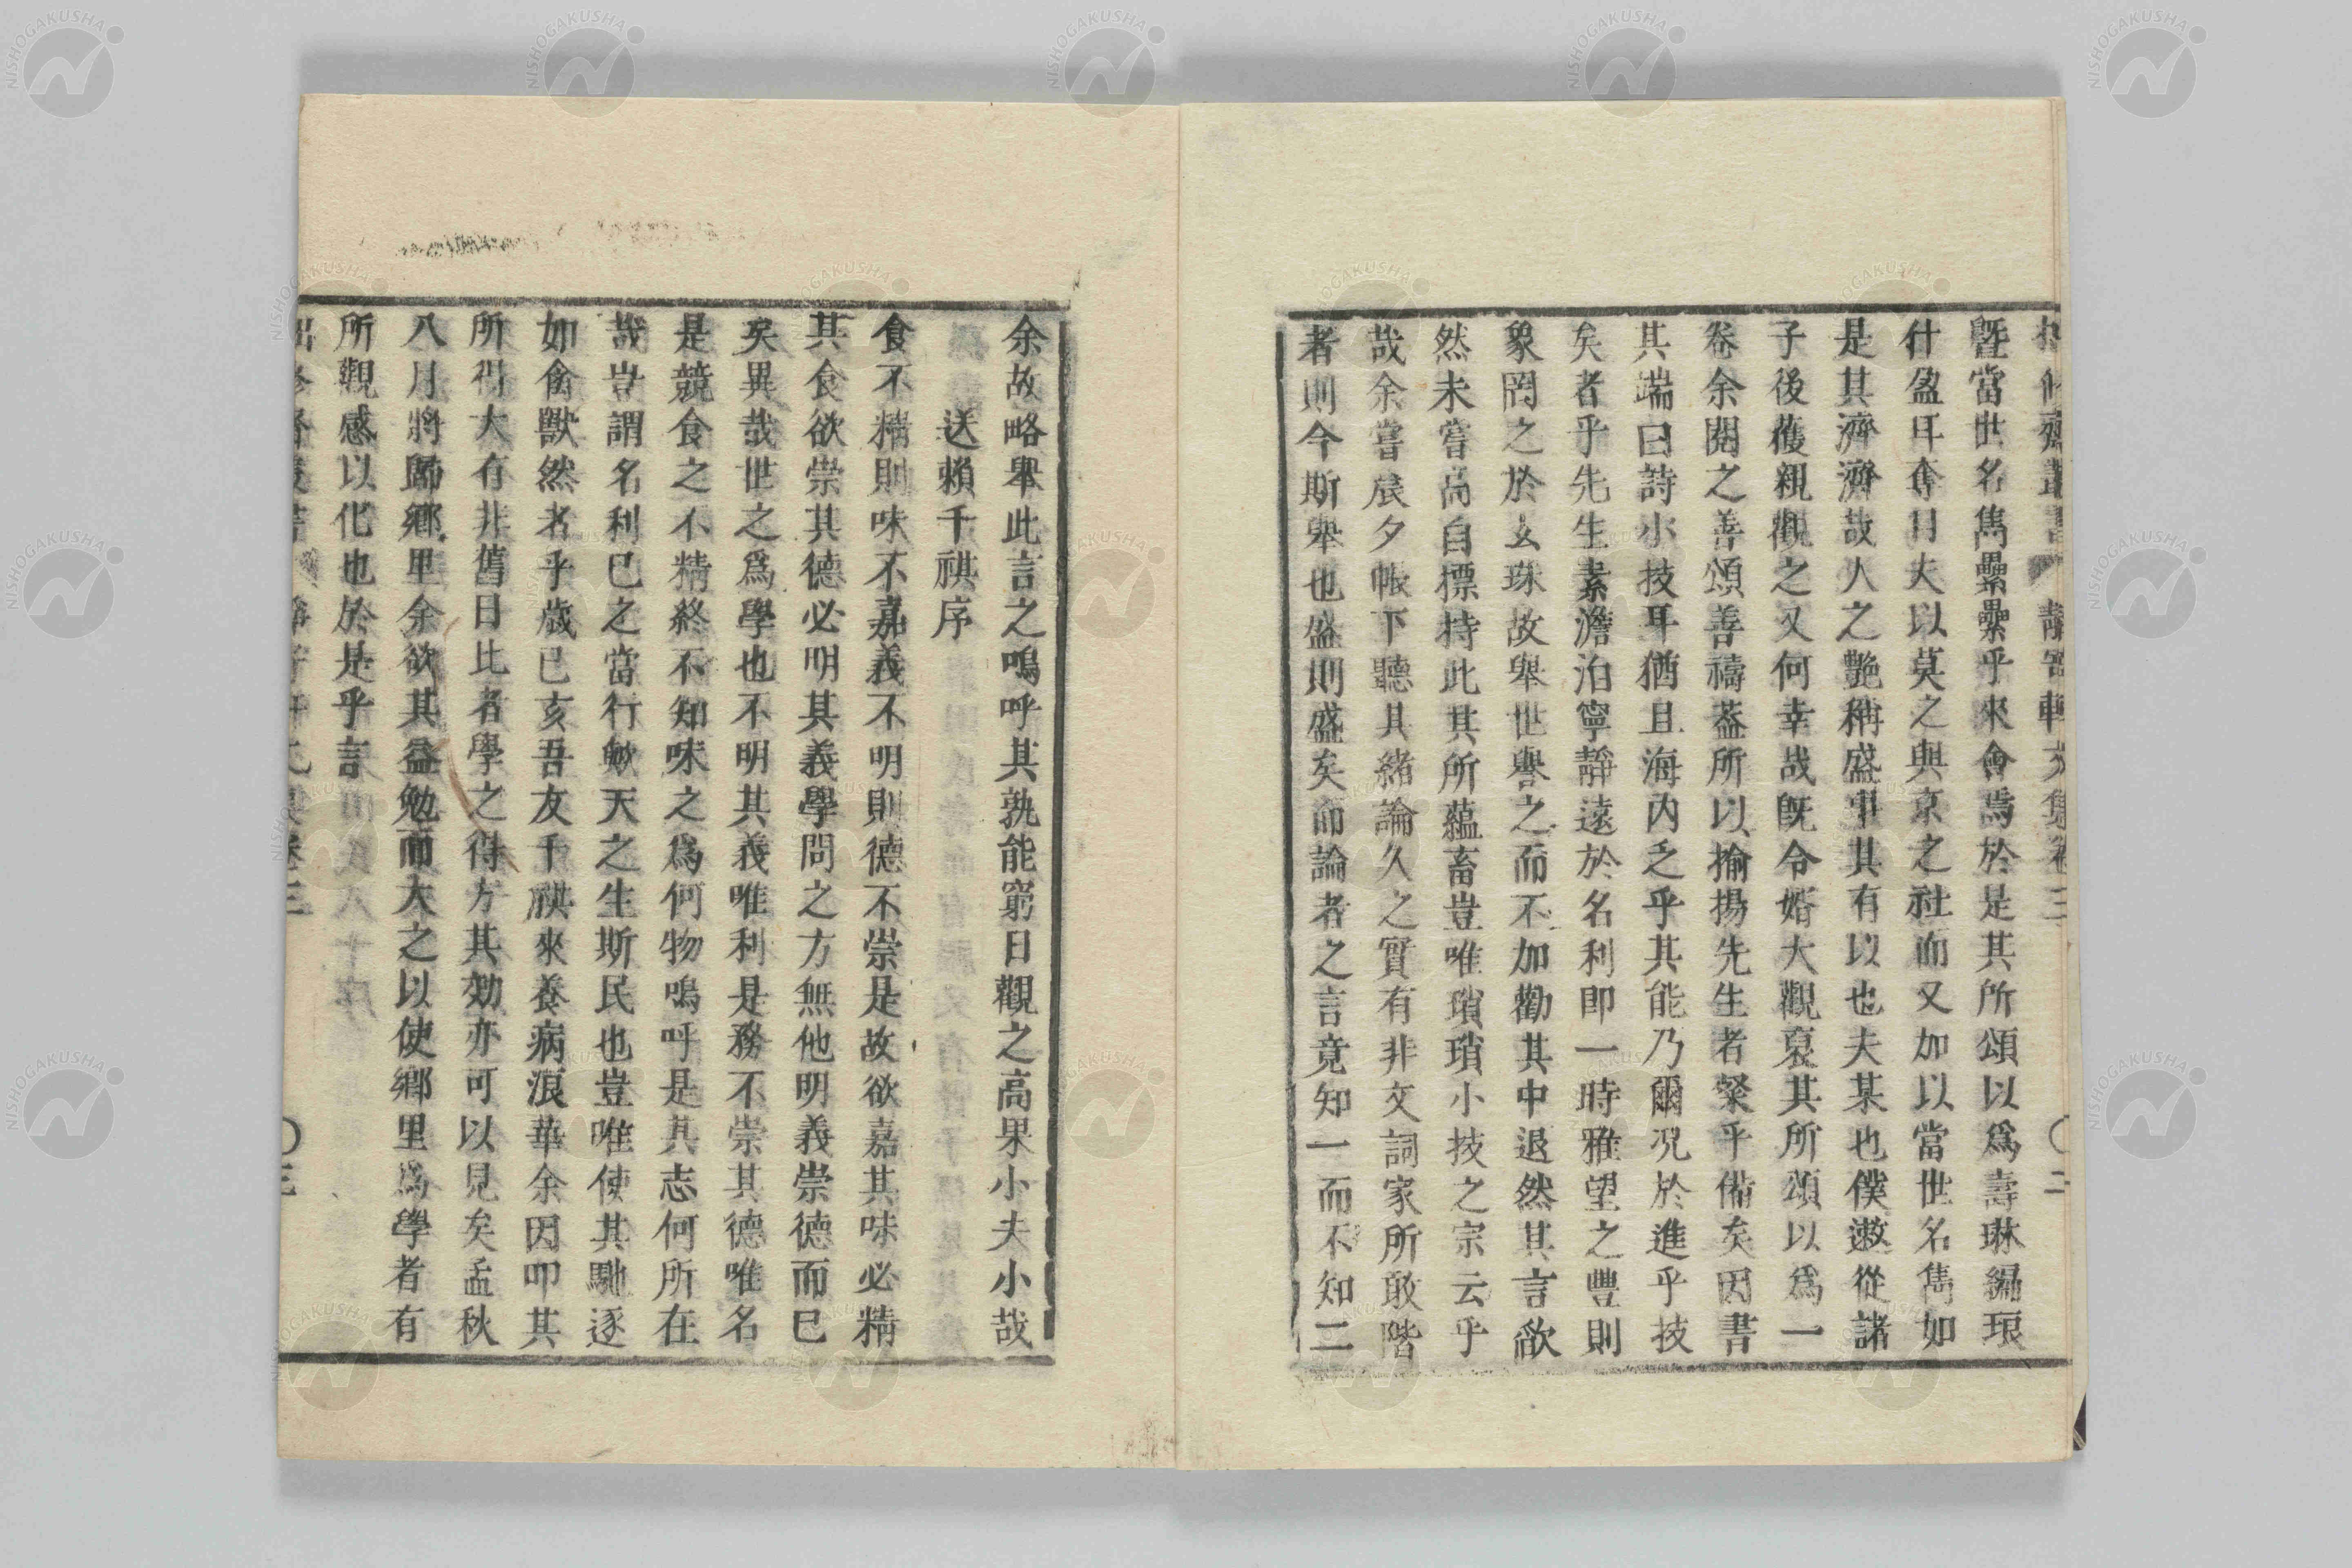 曁當世名雋纍纍乎來會焉於是其所頌以爲壽琳編琅
什盈耳奪目夫以莫之與京之社而又加以當世名雋如
是其濟濟哉人之艷稱盛事其有以也夫某也僕遬從諸
子後獲親觀之又何幸哉旣令婿大觀裒其所頌以爲一
卷余閱之善頌善禱葢所以揄揚先生者粲乎備矣因書
其端曰詩小技耳猶且海內乏乎其能乃爾况於進乎技
矣者乎先生素澹泊寧靜遠於名利即一時雅望之豐則
象罔之於玄珠故舉世譽之而不加勸其中退然其言欿
然未嘗高自標持此其所蘊畜豈唯瑣瑣小技之宗云乎
哉余嘗晨夕帳下聽其緒論久之實有非文詞家所敢階
者則今斯舉也盛則盛矣而論者之言竟知一而不知二
余故略舉此言之嗚呼其孰能窮日觀之高果小夫小哉
送賴千祺序
食不精則味不嘉義不明則德不崇是故欲嘉其味必精
其食欲崇其德必明其義學問之方無他明義崇德而已
矣異哉世之爲學也不明其義唯利是務不崇其德唯名
是競食之不精終不知味之爲何物嗚呼是其志何所在
哉豈謂名利已之當行歟天之生斯民也豈唯使其馳逐
如禽獸然者乎歲己亥吾友千祺來養病浪華余因叩其
所得大有非舊日比者學之得方其効亦可以見矣孟秋
八月將歸鄉里余欲其益勉而大之以使鄉里爲學者有
所觀感以化也於是乎言